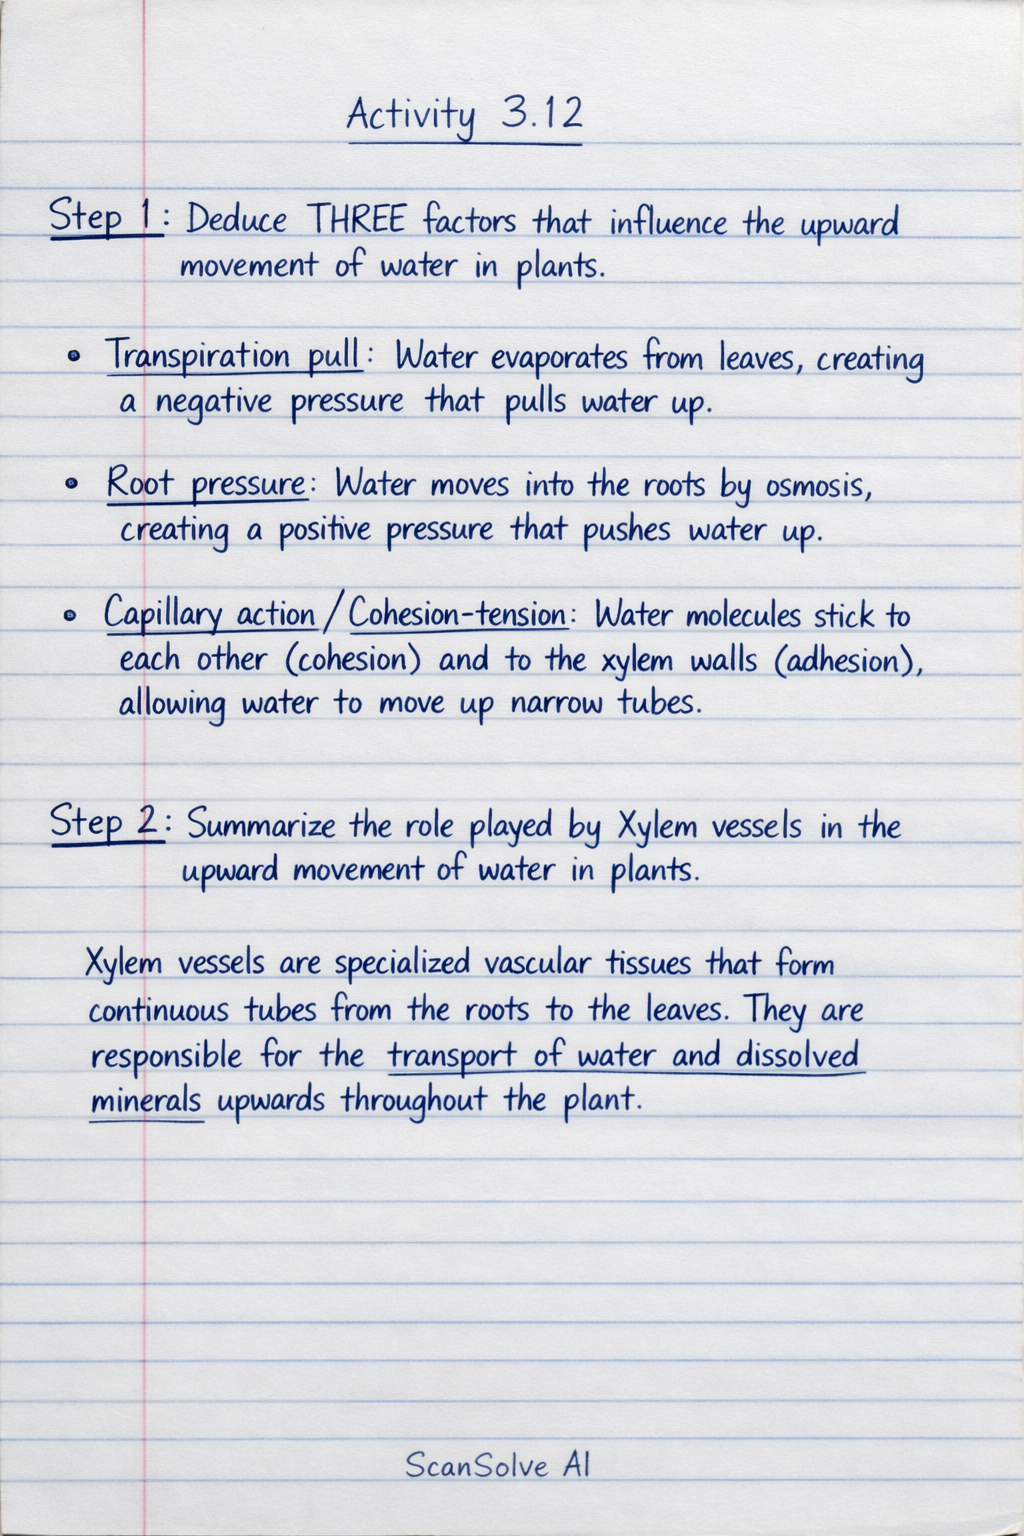 Activity 3.12
Step 1: Deduce THREE factors that influence the upward
movement of water in plants.
• Transpiration pull: Water evaporates from leaves, creating
a negative pressure that pulls water up.
• Root pressure: Water moves into the roots by osmosis,
creating a positive pressure that pushes water up.
• Capillary action / Cohesion-tension: Water molecules stick to
each other (cohesion) and to the xylem walls (adhesion),
allowing water to move up narrow tubes.
Step 2: Summarize the role played by Xylem vessels in the
upward movement of water in plants.
Xylem vessels are specialized vascular tissues that form
continuous tubes from the roots to the leaves. They are
responsible for the transport of water and dissolved
minerals upwards throughout the plant.
ScanSolve AI